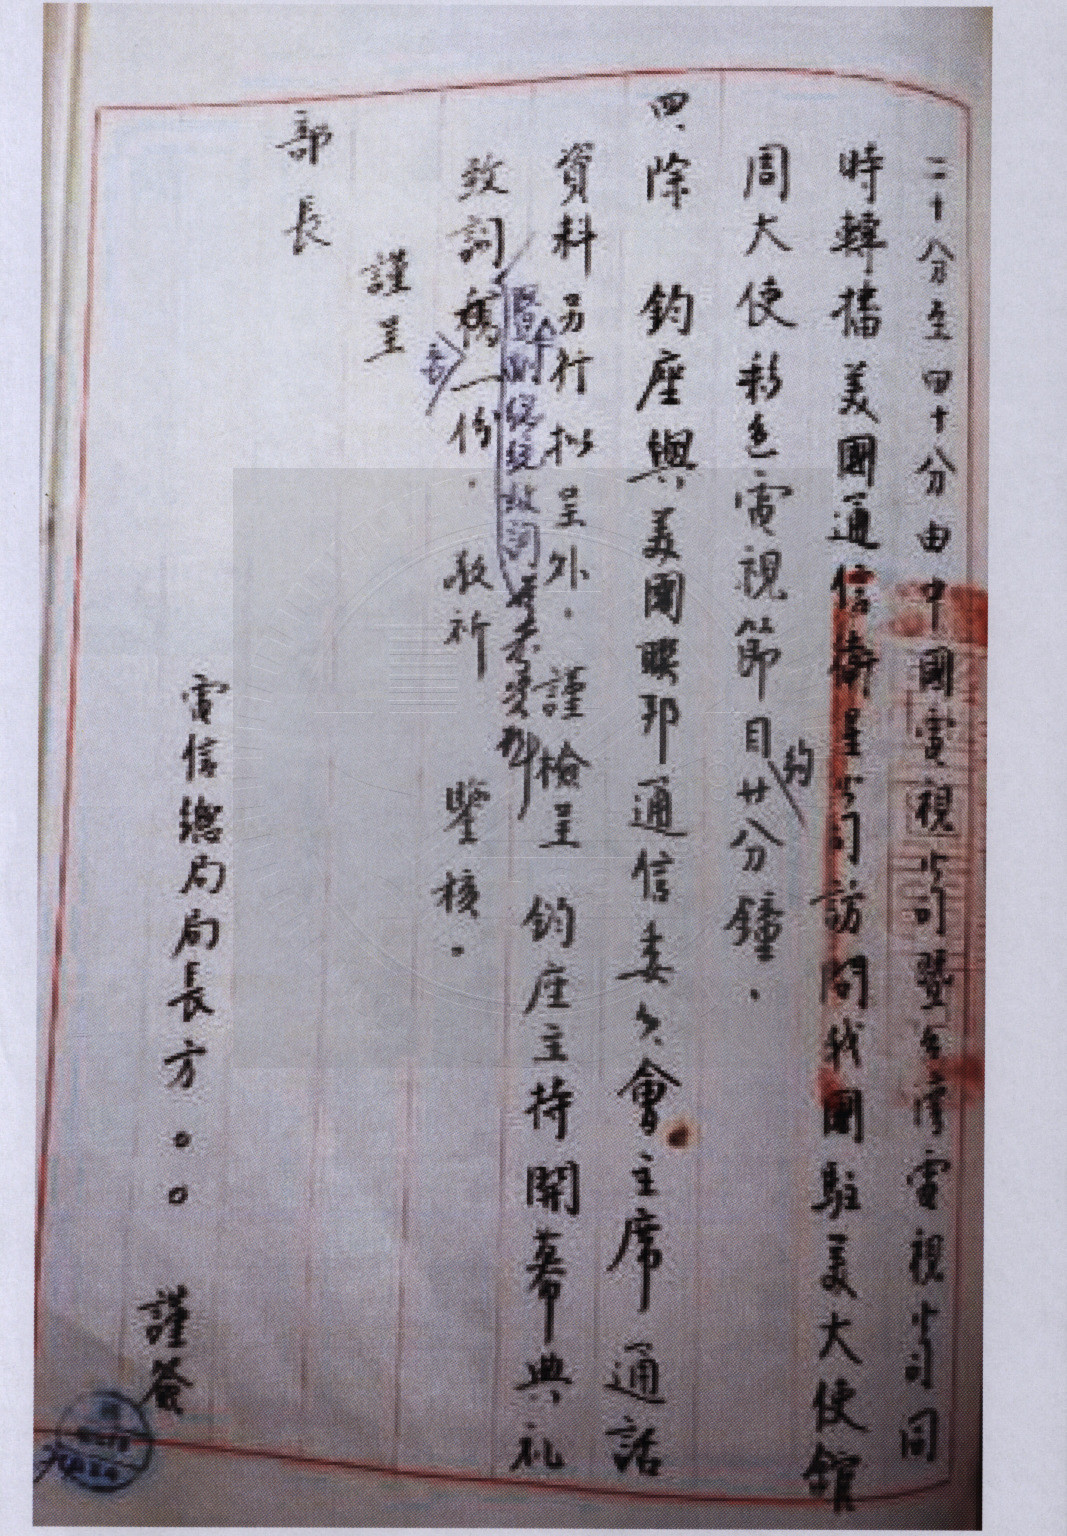 二十八分至四十分由中國電視公司暨台灣電視公司同
時轉播美國通信衛星公司訪問我國駐美大使館
周大使彩色電視節目約廿分鐘。
四、除 鈞座與美國聯邦通信委員會主席通話
資料另行拟呈外,謹檢呈 鈞座主持開幕典礼
暨副總統致詞
致詞稿一份,敬祈 鑒核。
謹呈
部長
電信總局局長方。。謹簽